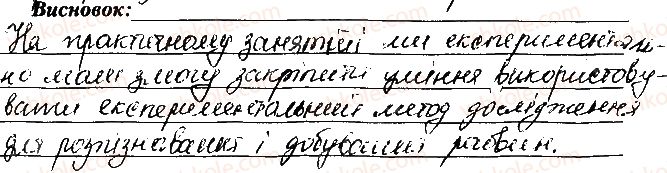 Висновок:
На практичному занятті ми експеримента-
но мали змогу закріпити уміння використову-
вати експериментальний метод дослідження
для розпізнавання і добування речовин.